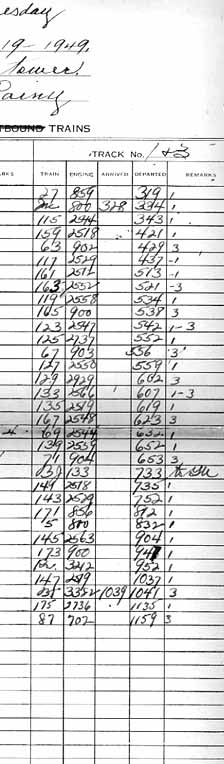 esday
19-1949.
Tower.
Rainy
TBOUND TRAINS
TRACK No. 1+3
RKS TRAIN ENGINE ARRIVED DEPARTED REMARKS
27 859 319 1
800 328 334 1
115 2544 343 1
159 2518 421 1
63 902 429 3
117 2529 437 1
161 2511 513 1
163 2552 521 3
119 2558 534 1
165 900 538 3
123 2547 542 1-3
125 2737 552 1
67 903 556 3
127 2550 559 1
129 2929 602 3
133 2561 607 1-3
135 2519 619 1
167 2548 623 3
69 2544 632 1
139 2559 652 1
71 904 653 3
133 733
149 2518 735 1
143 2529 752 1
171 856 1
5 800 832 1
145 2563 904 1
173 900 1
3212 952 1
147 2519 1037 1
3352 1039 1041 3
175 2736 1135 1
87 702 1159 3